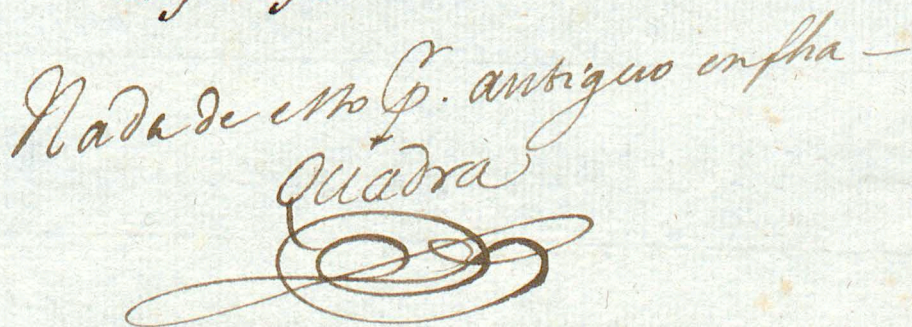 Nada de esto p. antiguo en fha —
Quadra